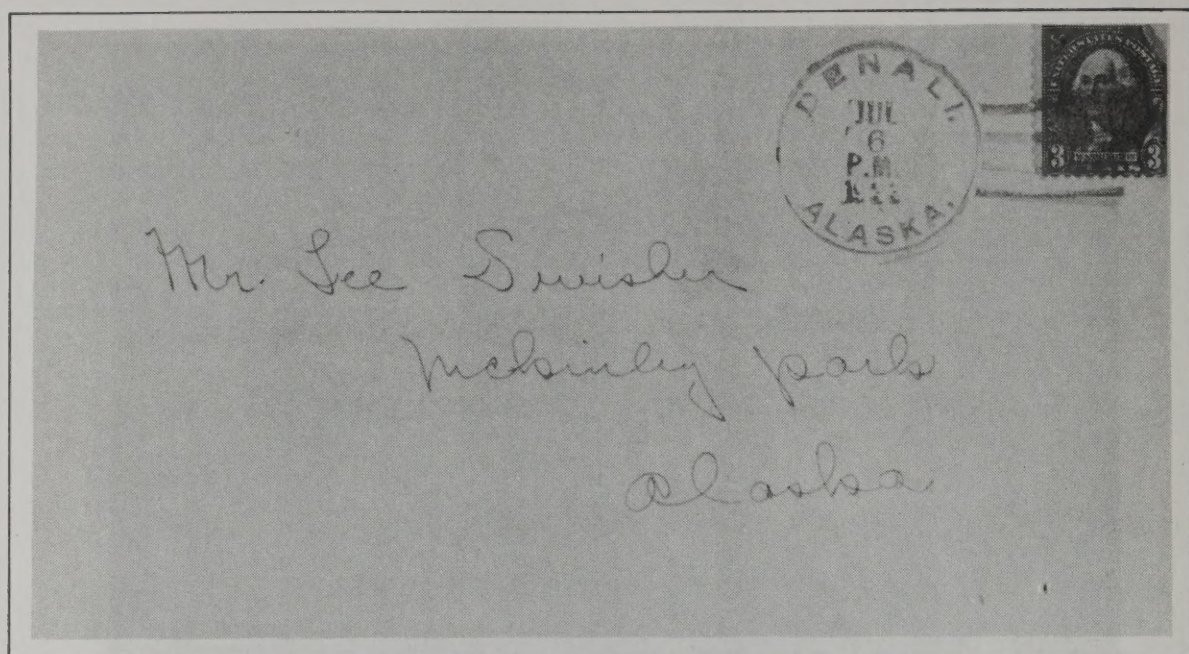 DENALI.
JUL
6
P.M.
ALASKA.
UNITED STATES POSTAGE
3 3
Mr. Lee Swisher
McKinley park
Alaska